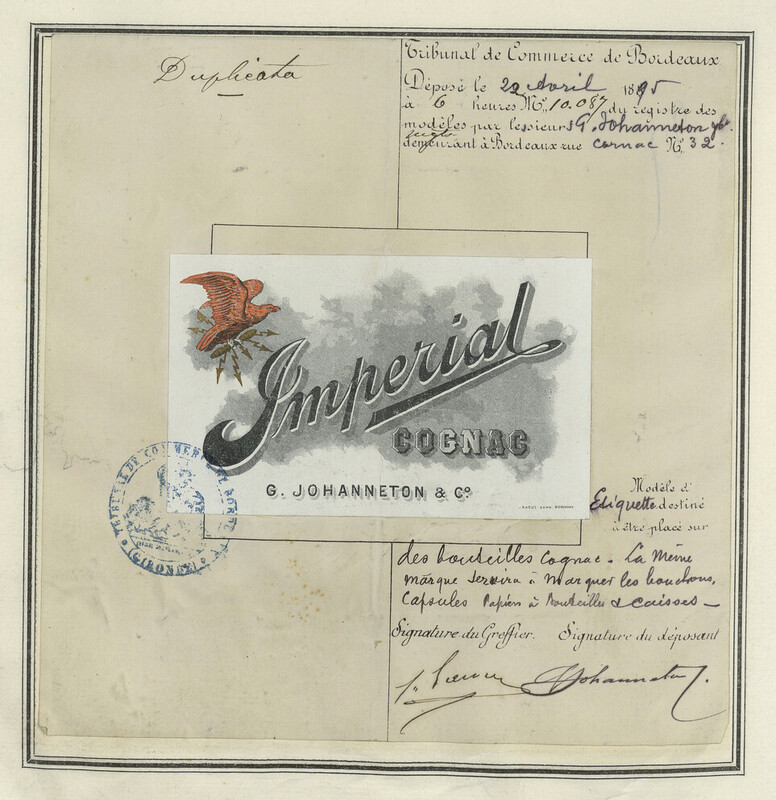 Duplicata
Tribunal de Commerce de Bordeaux
Déposé le 22 Avril 1895
à 6 heures No. 10.087 du registre des
modèles par les sieurs G. Johanneton
demeurant à Bordeaux rue Cornac No. 32.
Imperial
COGNAC
G. JOHANNETON & Co
TRIBUNAL DE COMMERCE DE BORDEAUX
(GIRONDE)
Modèle d'
Etiquette destiné
à être placé sur
des bouteilles Cognac. La Même
marque servira à Marquer les bouchons,
Capsules Papiers à Bouteilles & caisses
Signature du Greffier. Signature du déposant
Johanneton